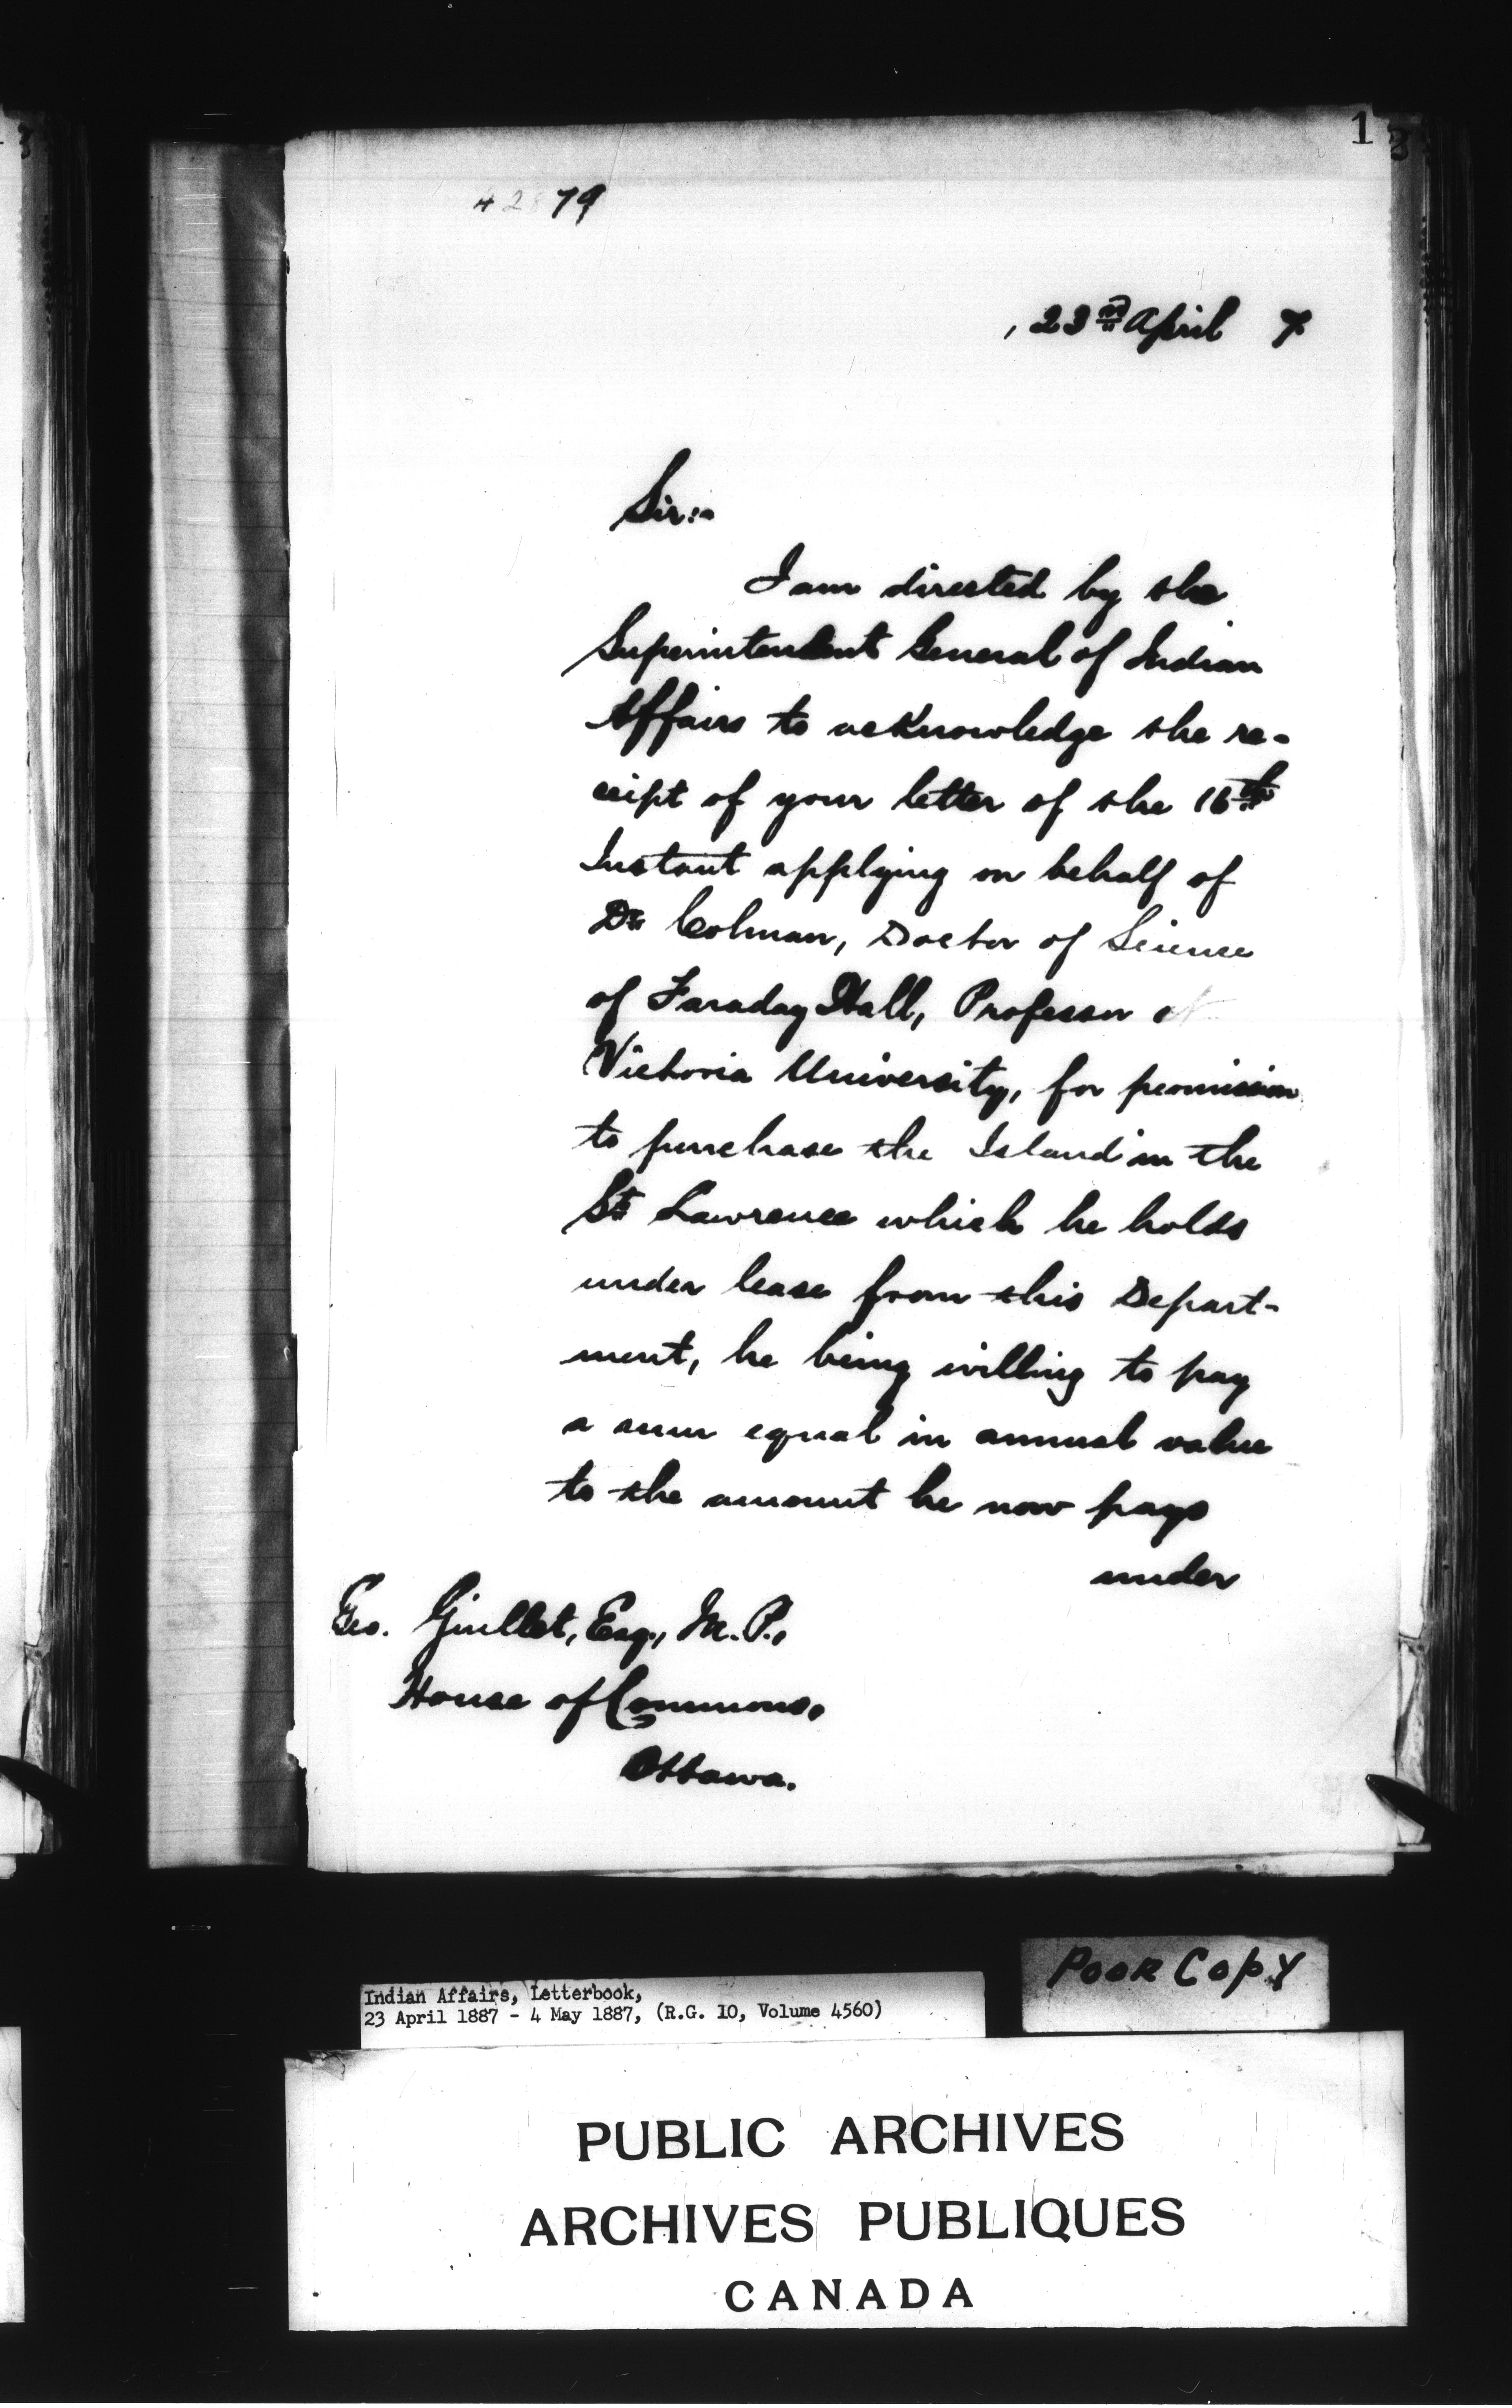 1
79
, 23rd April 7
Sir:-
I am directed by the
Superintendent General of Indian
Affairs to acknowledge the re-
ceipt of your letter of the 16th
Instant applying on behalf of
Dr Colman, Doctor of Science
of Faraday Hall, Professor at
Victoria University, for permission
to purchase the Island in the
St. Lawrence which he holds
under lease from this Depart-
ment, he being willing to pay
a sum equal in annual value
to the amount he now pays
under
Geo. Guillet, Esq., M.P.,
House of Commons,
Ottawa.
POOR COPY
Indian Affairs, Letterbook,
23 April 1887 - 4 May 1887, (R.G. 10, Volume 4560)
PUBLIC ARCHIVES
ARCHIVES PUBLIQUES
CANADA